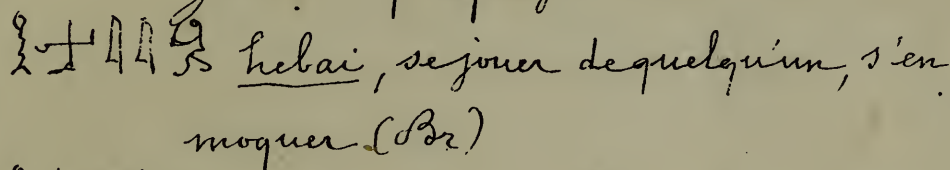 hebai, se jouer de quelqu'un, s'en
moquer (Br)